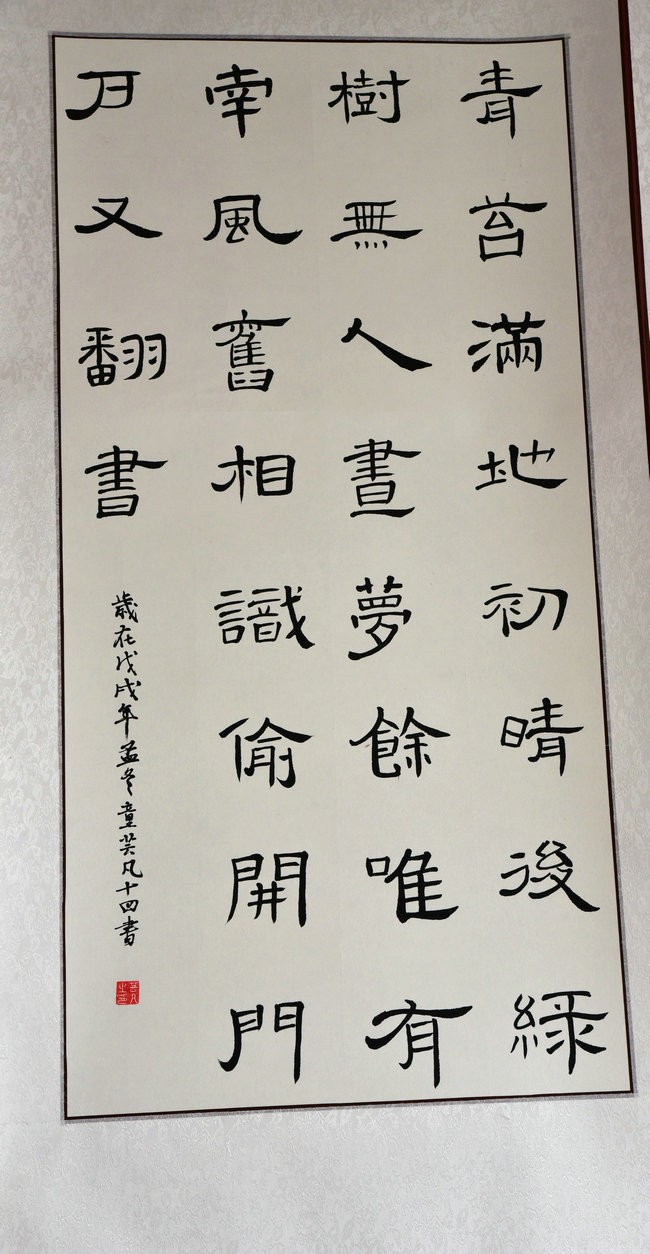 青苔滿地初晴後綠
樹無人晝夢餘唯有
南風舊相識偷開門
戶又翻書
歲在戊戌年孟冬童凡十四書